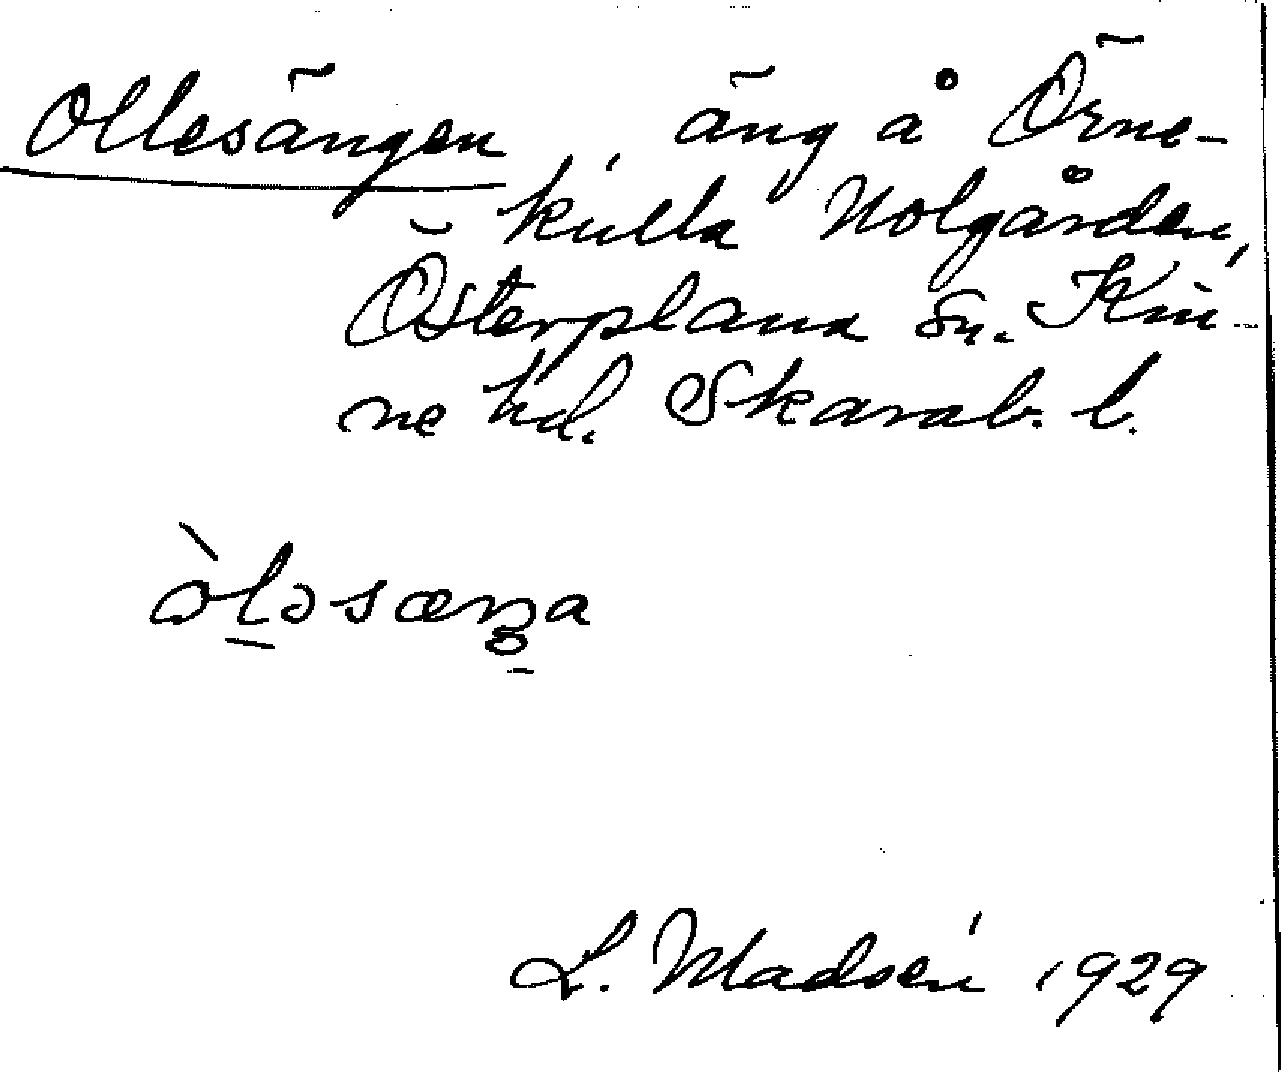 Ollesängen, äng å Örne-
kulla Nolgården,
Österplana sn. Kin-
ne hd. Skarab. l.
òləsæŋa
L. Madsén 1929